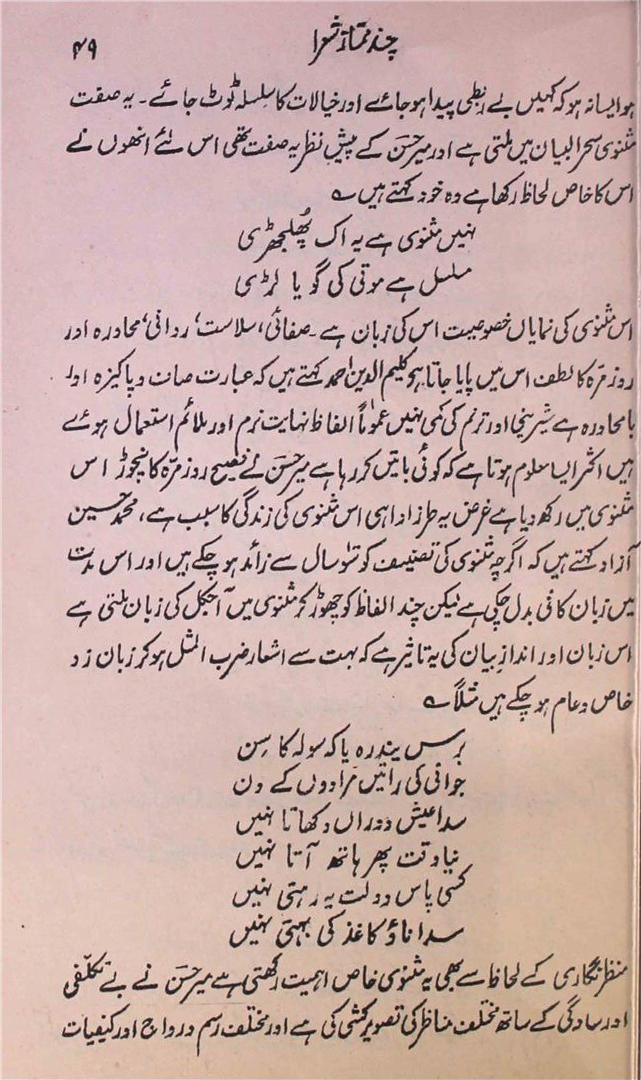 چند ممتاز شعرا
۴۹
ہو ایسا نہ ہو کہ کہیں بے ربطی پیدا ہو جائے اور خیالات کا سلسلہ ٹوٹ جائے۔ یہ صفت
مثنوی سحر البیان میں ملتی ہے اور میر حسن کے پیش نظر یہ صفت تھی اس لئے انھوں نے
اس کا خاص لحاظ رکھا ہے وہ خود کہتے ہیں ؎
نہیں مثنوی ہے یہ اک پُھلجھڑی
مسلسل ہے موتی کی گویا لڑی
اس مثنوی کی نمایاں خصوصیت اس کی زبان ہے۔ صفائی، سلاست، روانی، محاورہ اور
روز مرّہ کا لطف اس میں پایا جاتا ہے کلیم الدین احمد کہتے ہیں کہ عبارت صاف و پاکیزہ اور
با محاورہ ہے شیرینی اور ترنم کی کمی نہیں عموماً الفاظ نہایت نرم اور ملائم استعمال ہوئے
ہیں اکثر ایسا معلوم ہوتا ہے کہ کوئی باتیں کر رہا ہے میر حسن نے فصیح روز مرّہ کا نچوڑ اس
مثنوی میں رکھ دیا ہے غرض یہ طرز ادا ہی اس مثنوی کی زندگی کا سبب ہے، محمد حسین
آزاد کہتے ہیں کہ اگرچہ مثنوی کی تصنیف کو سَو سال سے زائد ہو چکے ہیں اور اس مدت
میں زبان کافی بدل چکی ہے لیکن چند الفاظ کو چھوڑ کر مثنوی میں آجکل کی زبان ملتی ہے
اس زبان اور انداز بیان کی یہ تاثیر ہے کہ بہت سے اشعار ضرب المثل ہو کر زبان زد
خاص و عام ہو چکے ہیں مثلاً ؎
برس پندرہ یا کہ سولہ کا سِن
جوانی کی راتیں مُرادوں کے دن
سدا عیش دوراں دکھاتا نہیں
گیا وقت پھر ہاتھ آتا نہیں
کسی پاس دولت یہ رہتی نہیں
سدا ناؤ کاغذ کی بہتی نہیں
منظر نگاری کے لحاظ سے بھی یہ مثنوی خاص اہمیت رکھتی ہے میر حسن نے بے تکلّفی
اور سادگی کے ساتھ مختلف مناظر کی تصویر کشی کی ہے اور مختلف رسم و رواج اور کیفیات